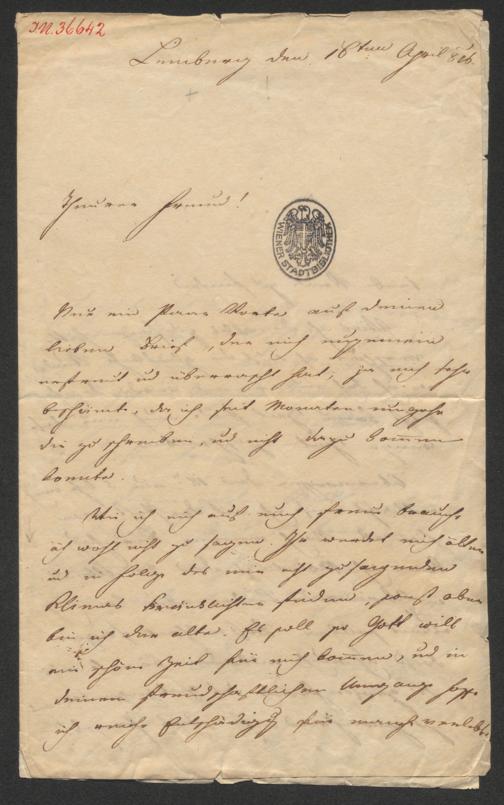 IN. 36642
Lemberg den 18ten April 826.
Theurer Freund!
WIENER STADTBIBLIOTHEK
Nur ein Paar Worte auf deinen
lieben Brief, der mich ungemein
erfreut und überrascht hat, ja mich sehr
beschämte, da ich seit Monaten
dir zu schreiben, und nicht dazu kommen
konnte.
Wie ich mich auf euch freue brauche
ich wohl nicht zu sagen. Ihr werdet mich älter
und in Folge des mir nicht zusagenden
Klimas kränklicher finden, sonst aber
bin ich der alte. Es soll so Gott will
eine schöne Zeit für mich kommen, und in
deinem freundschaftlichen Umgange hoffe
ich reiche Entschädigung für manch